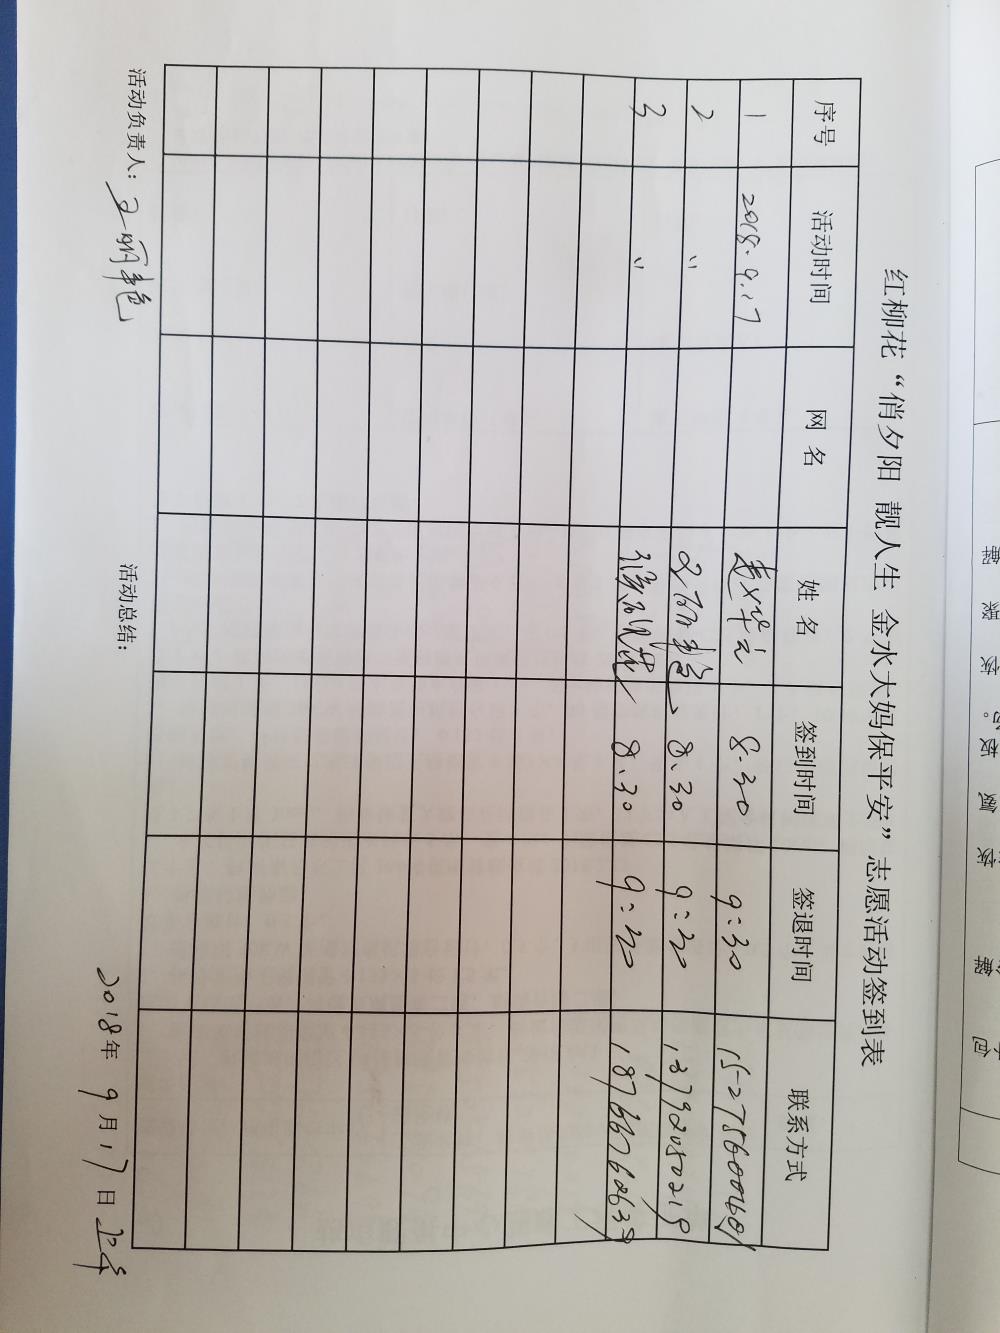 红柳花“俏夕阳 靓人生 金水大妈保平安”志愿活动签到表
序号 活动时间 网 名 姓 名 签到时间 签退时间 联系方式
1 2018.9.17 8.30 9:30
2 〃 8.30 9:30 13792050219
3 〃 8.30 9:30 18766762637
活动负责人: 活动总结:
2018年 9月17日 上午
解
聚
恢
板
氨
恢
解
包